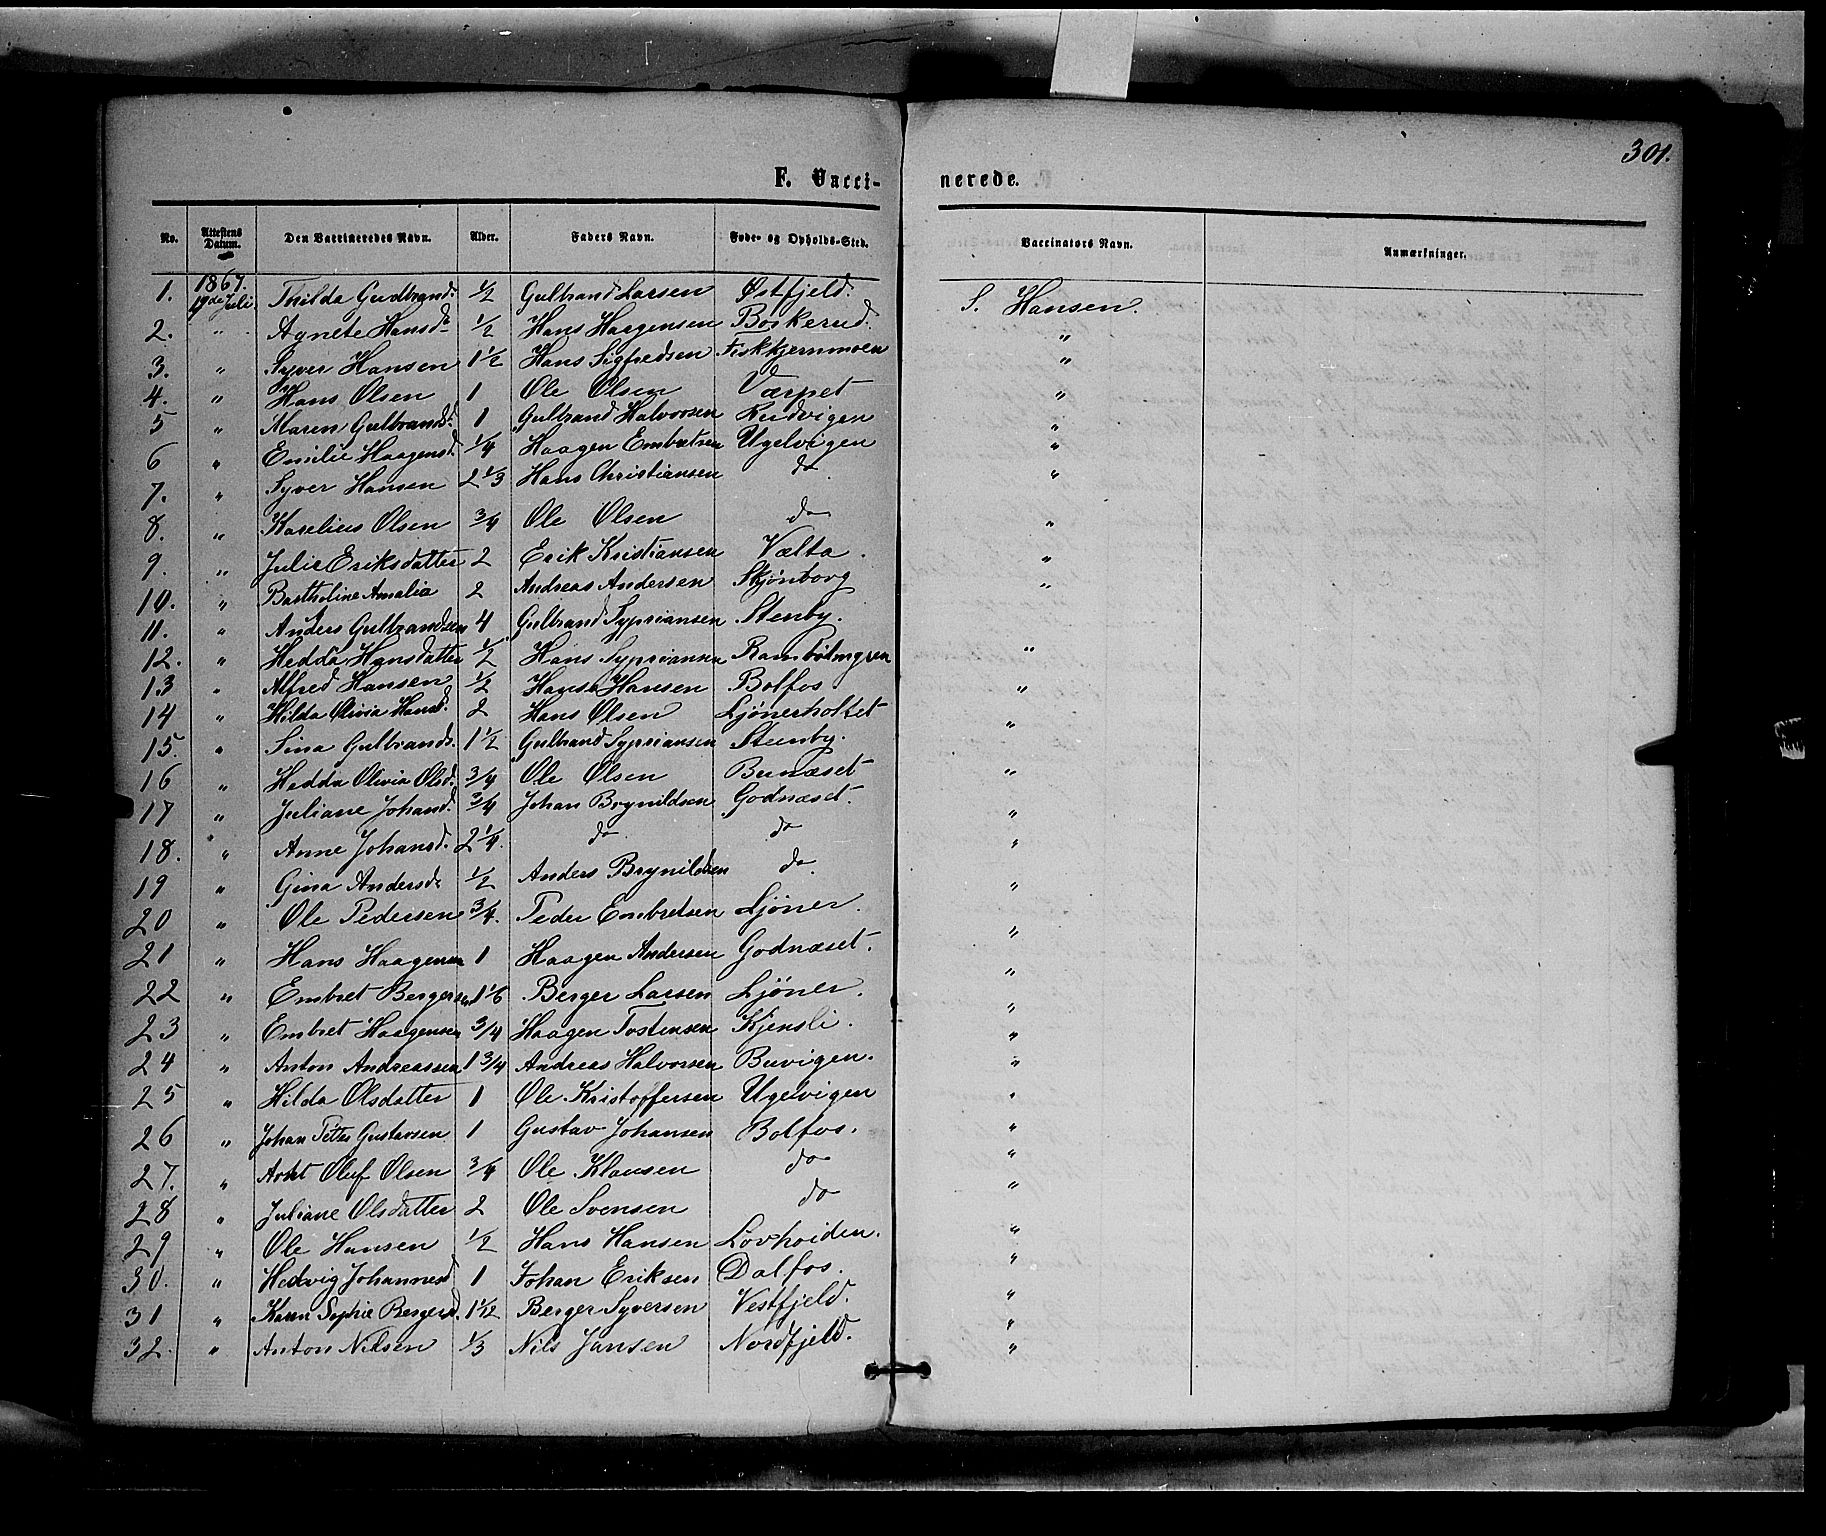 301.
F. Vacci- nerede.
No. Attestens Datum. Den Vaccineredes Navn. Alder. Faders Navn. Føde- og Opholds-Sted. Vaccinators Navn. Anmærkninger.
1867.
1. 19de Juli Thilda Gudbrandd. ½ Gulbrand Larsen Østfjeld. S. Hansen.
2. " Agnete Hansd. ½ Hans Haagensen Boskerud. "
3. " Syver Hansen 1½ Hans Sigfredsen Fiskkjernmoen "
4. " Hans Olsen 1 Ole Olsen Værpet "
5 " Maren Gulbrandd. 1 Gulbrand Halvorsen Rudvigen "
6 " Emilie Haagensd. ¼ Haagen Embretsen Ugelvigen "
7. " Syver Hansen 2⅓ Hans Christiansen do "
8. " Karelius Olsen ¾ Ole Olsen do "
9. " Julie Eriksdatter 2 Erik Kristiansen Vælta. "
10. " Bartholine Amalia 2 Andreas Andersen Skjønborg "
11. " Anders Gulbrandsen 4 Gulbrand Sypriansen Stenby.
12. " Hedda Hansdatter ½ Hans Syprianseen "
13 " Alfred Hansen ½ Hans Hansen Bolfos "
14 " Hilda Olivia Hansd. 2 Hans Olsen Ljønerholtet "
15. " Sina Gulbrandd. 1½ Gulbrand Syprianse Stenby.
16 " Hedda Olivia Olsd. ¾ Ole Olsen Bunæset "
17 " Juliane Johansd. ¾ Johan Brynildsen Godnæset. "
18. " Anne Johansd. 2¼. do do "
19 " Gina Andersd. ½ Anders Brynildsen do. "
20 " Ole Pedersen ¾. Peder Embretsen Ljøner. "
21 " Hans Haagensen 1 Haagen Andersen Godnæset. "
22 " Embret Bergersen 1⅙ Berger Larsen Ljøner. "
23 " Embret Haagensen ¾ Haagen Tostensen Kjensli. "
24 " Anton Andreassen 1¾ Andreas Halvorsen Buvigen. "
25 " Hilda Olsdatter 1 Ole Kristoffersen Ugelvigen "
26 " Johan Petter Gustavsen 1 Gustav Johansen Bolfos. "
27. " Oluf Olsen ¾ Ole Klausen do "
28 " Juliane Olsdatter 2 Ole Svensen do "
29 " Ole Hansen ½ Hans Hansen Lövhoiden. "
30. " Hedvig Johannesd 1 Johan Eriksen Dalfos. "
31 " Karen Sophie Bergersd. 1 1/12 Berger Syversen Vestfjeld. "
32. " Anton Nilsen ⅓ Nils Jansen Nordfjeld. "